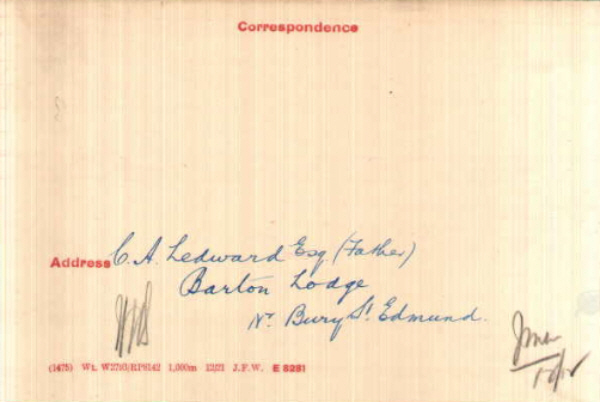 Correspondence
Address C. A. Ledward Esq (Father)
Barton Lodge
Nr. Bury St. Edmund.
(1475) Wt. W2703/RP8142 1,000m 12/21 J.F.W. E 8281